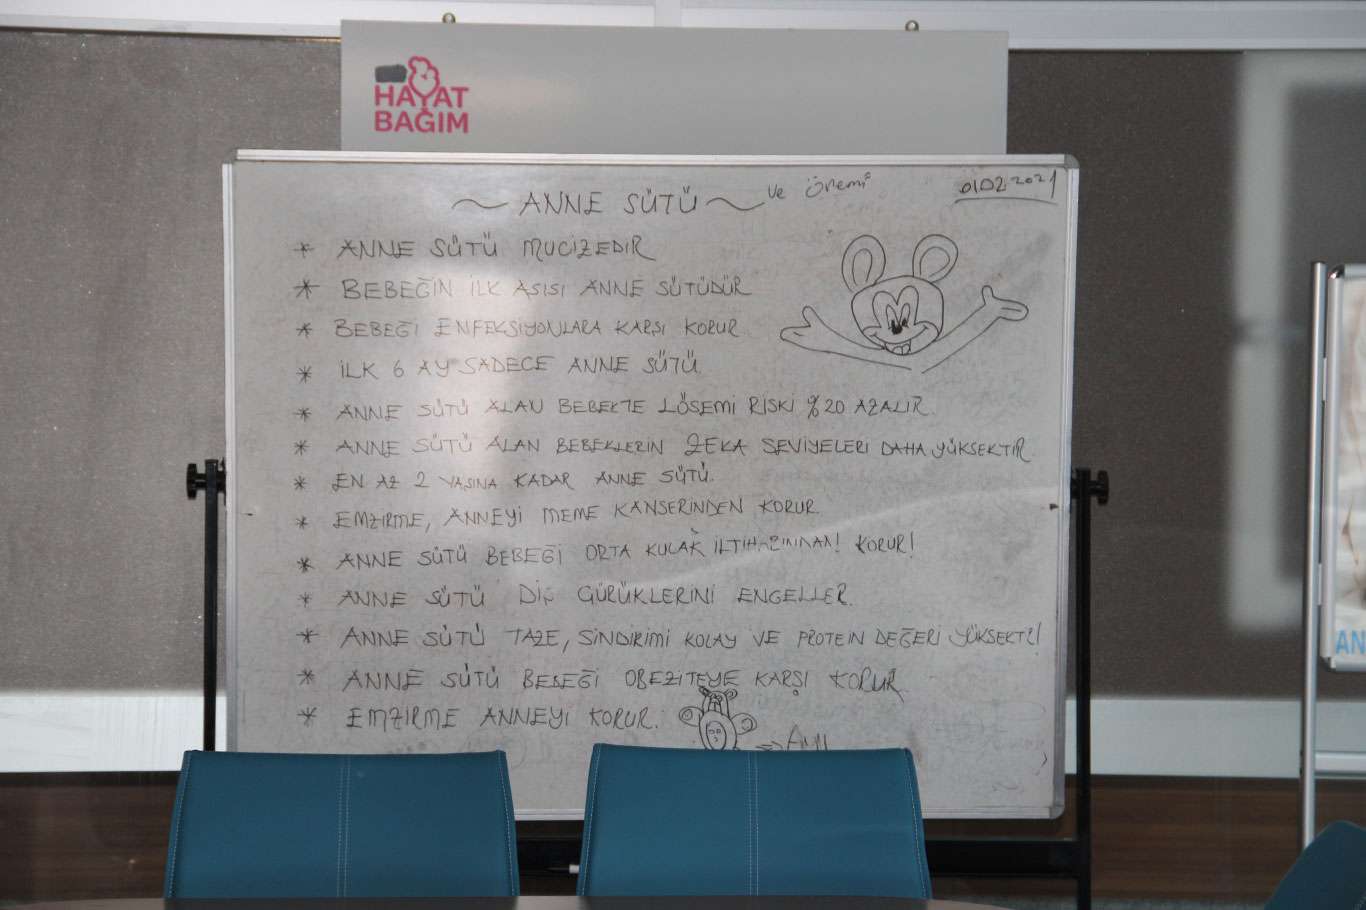 HAYAT
BAĞIM
~ ANNE SÜTÜ ~ ve önemi
01.02.2021
* ANNE SÜTÜ MUCİZEDİR
* BEBEĞİN İLK AŞISI ANNE SÜTÜDÜR
* BEBEĞİ ENFEKSİYONLARA KARŞI KORUR
* İLK 6 AY SADECE ANNE SÜTÜ.
* ANNE SÜTÜ ALAN BEBEKTE LÖSEMİ RİSKİ %20 AZALIR.
* ANNE SÜTÜ ALAN BEBEKLERİN ZEKA SEVİYELERİ DAHA YÜKSEKTİR
* EN AZ 2 YAŞINA KADAR ANNE SÜTÜ.
* EMZİRME, ANNEYİ MEME KANSERİNDEN KORUR.
* ANNE SÜTÜ BEBEĞİ ORTA KULAK İLTİHABINDAN! KORUR!
* ANNE SÜTÜ DİŞ ÇÜRÜKLERİNİ ENGELLER.
* ANNE SÜTÜ TAZE, SİNDİRİMİ KOLAY VE PROTEİN DEĞERİ YÜKSEKTİR!
* ANNE SÜTÜ BEBEĞİ OBEZİTEYE KARŞI KORUR
* EMZİRME ANNEYİ KORUR.
AN